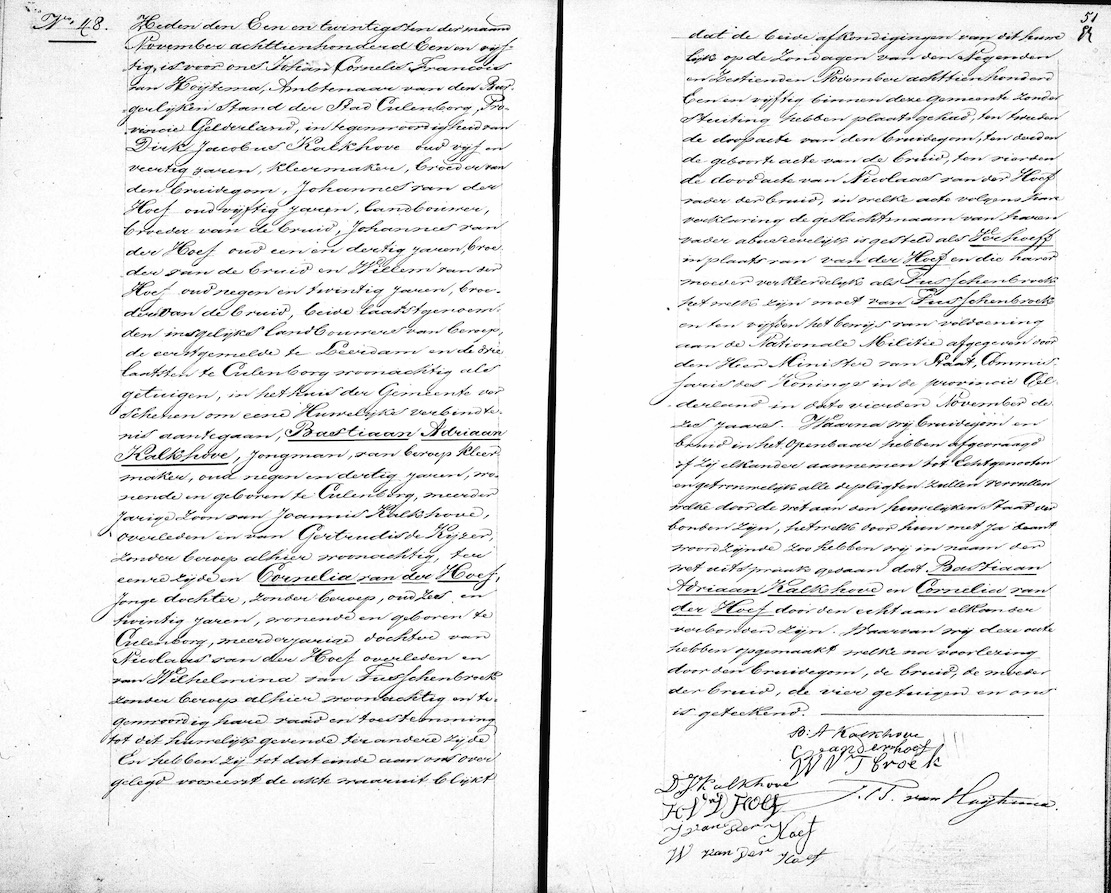 No. 48.
Heden den Een en twintigsten der maand
November achttienhonderd Een en vijf-
tig, is voor ons Johan Cornelis Francois
van Hoijtema, Ambtenaar van den Bur-
gerlijken Stand der Stad Culenborg, Pro-
vincie Gelderland, in tegenwoordigheid van
Dirk Jacobus Kalkhove oud vijf en
veertig jaren, kleermaker, broeder van
den bruidegom, Johannes van der
Hoef oud vijftig jaren, landbouwer,
broeder van de bruid, Johannes van
der Hoef oud een en dertig jaren, broe-
der van de bruid en Willem van der
Hoef oud negen en twintig jaren, broe-
der van de bruid, beide laatstgenoem-
den insgelijks landbouwers van beroep,
de eerstgemelde te Leerdam en de drie
laatsten te Culenborg woonachtig als
getuigen, in het huis der Gemeente ver
schenen om eene Huwelijks verbindte-
nis aantegaan, Bastiaan Adriaan
Kalkhove, jongman, van beroep kleer
maker, oud negen en dertig jaren, wo-
nende en geboren te Culenborg, meerder
jarige zoon van Joannis Kalkhove,
overleden en van Gertrudis de Kijzer,
zonder beroep alhier woonachtig, ter
eenre zijde en Cornelia van der Hoef,
jonge dochter, zonder beroep, oud zes en
twintig jaren, wonende en geboren te
Culenborg, meerderjarige dochter van
Nicolaas van der Hoef overleden en
van Wilhelmina van Tusschenbroek
zonder beroep alhier woonachtig en te-
genwoordig hare raad en toestemming
tot dit huwelijk gevende ter andere zijde
En hebben zij tot dat einde aan ons over
gelegd vooreerst de akte waaruit blijkt
51
dat de beide afkondigingen van dit huwe
lijk op de Zondagen van den Negenden
en Zestienden November achttienhonderd
Een en vijftig binnen deze Gemeente zonder
stuiting hebben plaats gehad, ten tweeden
de doopacte van den bruidegom, ten derden
de geboorte acte van de bruid, ten vierden
de doodacte van Nicolaas van der Hoef
vader der bruid, in welke acte volgens hare
verklaring de geslachtsnaam van haren
vader abusievelijk is gesteld als Verhoeff
in plaats van van der Hoef en die harer
moeder verkeerdelijk als Tusschenbroek
het welk zijn moet van Tusschenbroek
en ten vijfden het bewijs van voldoening
aan de Nationale Militie afgegeven door
den Heer Minister van Staat, Commis-
saris des Konings in de provincie Gel-
derland in dato vierden November de-
zes jaars. Waarna wij bruidegom en
bruid in het openbaar hebben afgevraagd
of zij elkander aannemen tot Echtgenooten
en getrouwelijk alle de pligten zullen vervullen
welke door de wet aan den huwelijken Staat ver
bonden zijn, het welk door hun met Ja beant
woord zijnde zoo hebben wij in naam der
wet uitspraak gedaan dat Bastiaan
Adriaan Kalkhove en Cornelia van
der Hoef door den echt aan elkander
verbonden zijn. Waarvan wij deze acte
hebben opgemaakt welke na voorlezing
door den bruidegom, de bruid, de moeder
der bruid, de vier getuigen en ons
is geteekend.
B: A Kalkhove
C van der hoef
W V T broek
D J Kalkhove
J. C. F. van Hoijtema.
J van der Hoef
W van Der Hoef